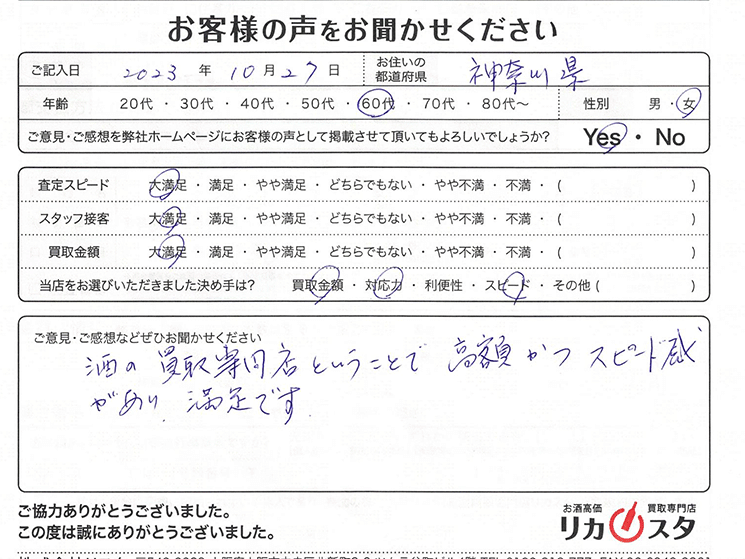 お客様の声をお聞かせください
ご記入日 2023 年 10月 27日 お住いの都道府県 神奈川県
年齢 20代 ・ 30代 ・ 40代 ・ 50代 ・ 60代 ・ 70代 ・ 80代〜 性別 男 ・ 女
ご意見・ご感想を弊社ホームページにお客様の声として掲載させて頂いてもよろしいでしょうか? Yes ・ No
査定スピード 大満足 ・ 満足 ・ やや満足 ・ どちらでもない ・ やや不満 ・ 不満 ・ ( )
スタッフ接客 大満足 ・ 満足 ・ やや満足 ・ どちらでもない ・ やや不満 ・ 不満 ・ ( )
買取金額 大満足 ・ 満足 ・ やや満足 ・ どちらでもない ・ やや不満 ・ 不満 ・ ( )
当店をお選びいただきました決め手は? 買取金額 ・ 対応力 ・ 利便性 ・ スピード ・ その他 ( )
ご意見・ご感想などぜひお聞かせください
酒の買取専門店ということで 高額かつ スピード感
があり、満足です
ご協力ありがとうございました。
この度は誠にありがとうございました。
お酒高価 買取専門店
リカスタ